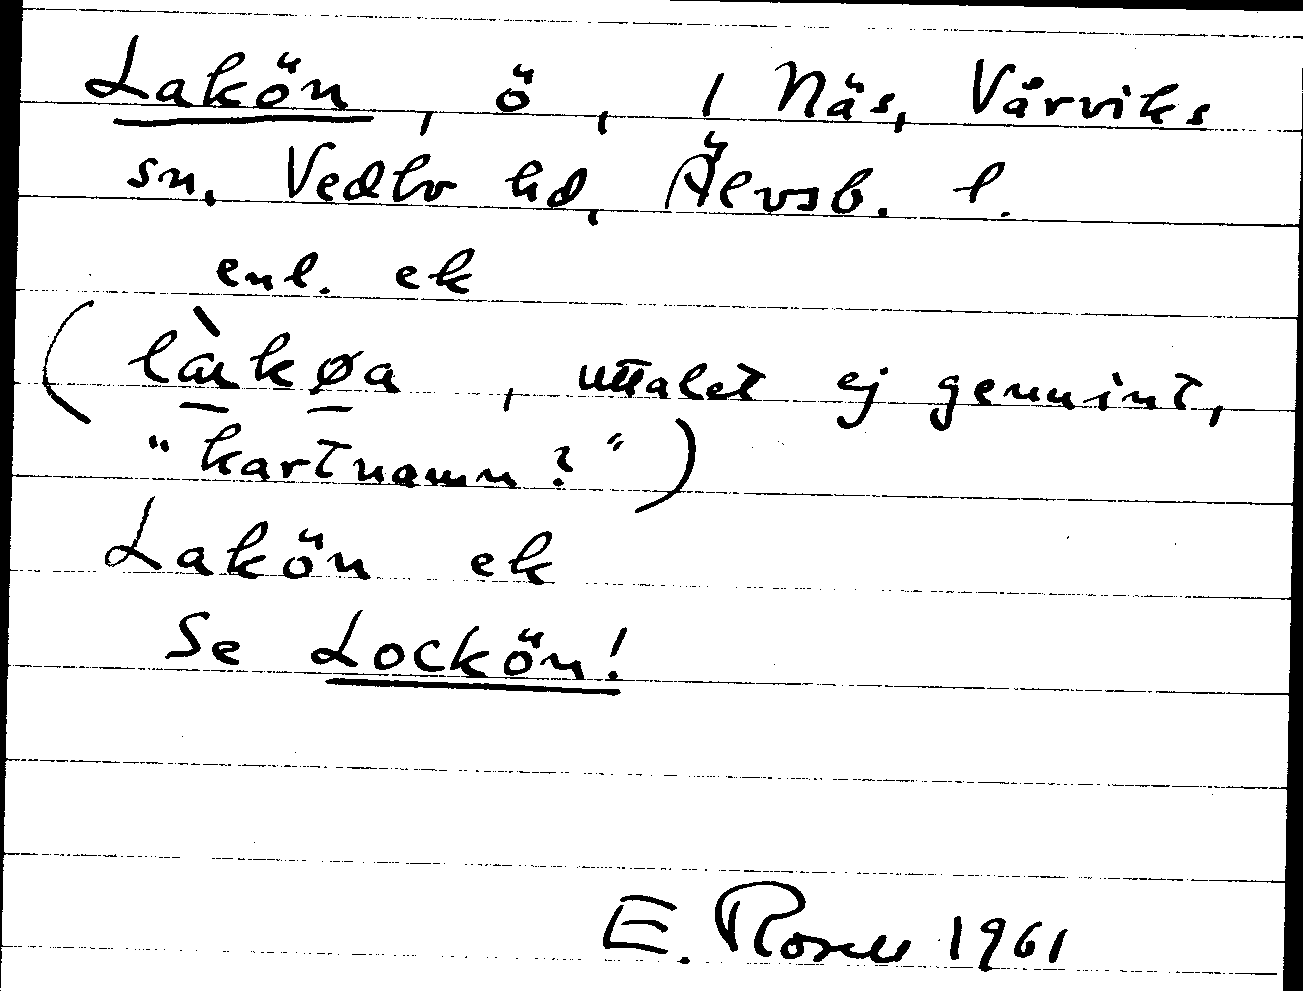 Lakön, ö, i Näs, Vårviks
sn, Vedbo hd, Älvsb. l.
enl. ek
(làkøa, uttalet ej genuint,
"kartnamn?")
Lakön ek
Se Lockön!
E. Rosell 1961